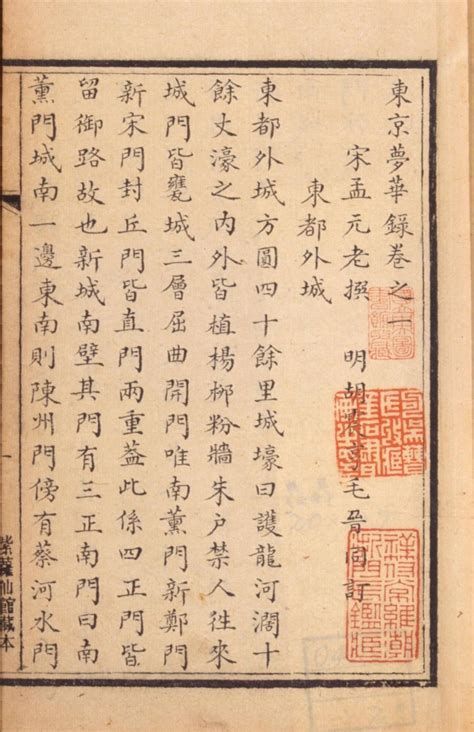 東京夢華錄卷之一
宋孟元老撰 明胡震亨毛晉同訂
東都外城
東都外城方圓四十餘里城壕曰護龍河濶十
餘丈濠之內外皆植楊栁粉牆朱户禁人徃來
城門皆甕城三層屈曲開門唯南薰門新鄭門
新宋門封丘門皆直門兩重葢此係四正門皆
留御路故也新城南壁其門有三正南門曰南
薰門城南一邊東南則陳州門傍有蔡河水門
一
紫仙館藏本